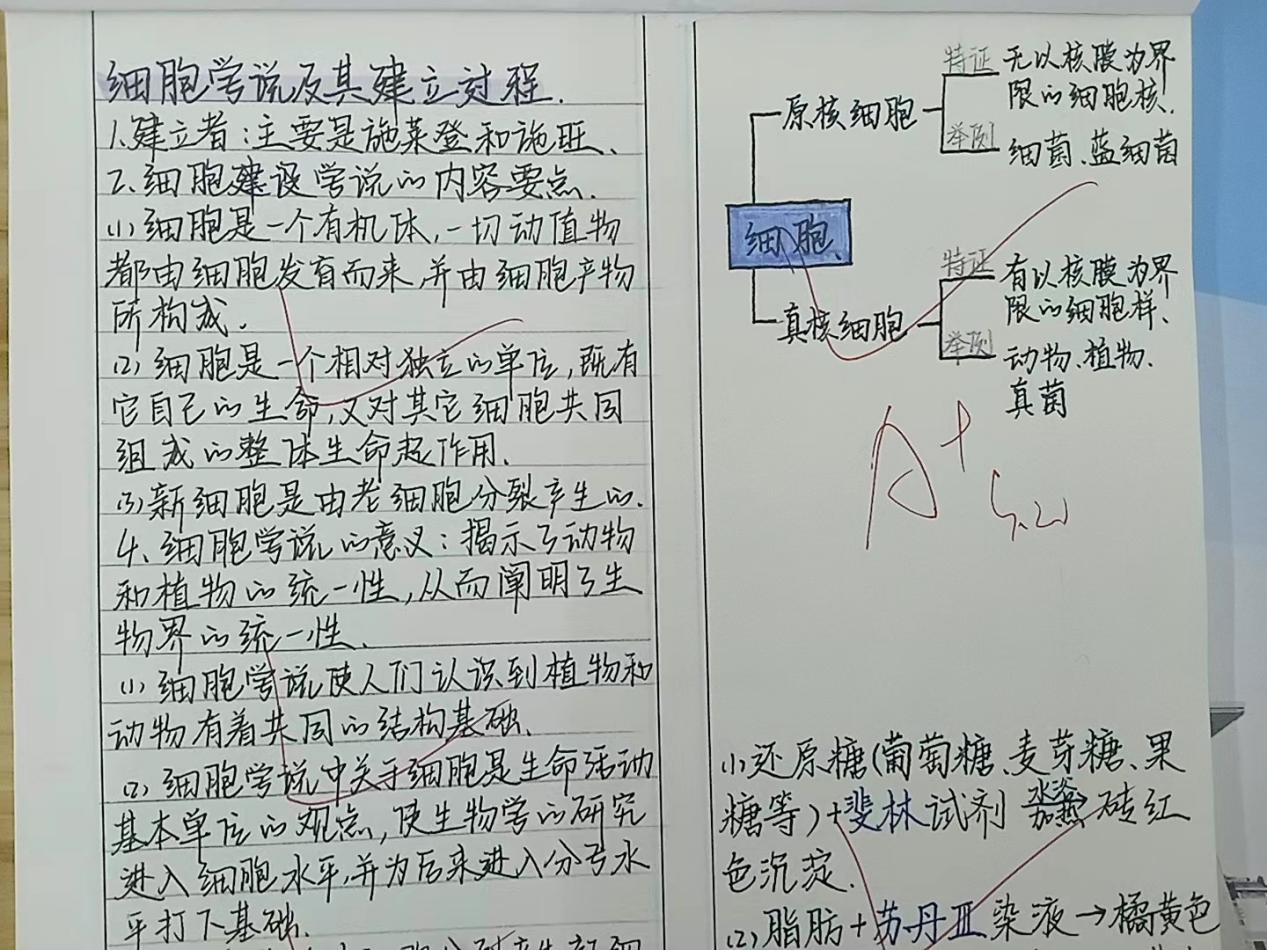 细胞学说及其建立过程.
1.建立者:主要是施莱登和施旺、
2.细胞建设学说的内容要点.
(1)细胞是一个有机体,一切动值物
都由细胞发育而来,并由细胞产物
所构成.
(2)细胞是一个相对独立的单位,既有
它自己的生命,又对其它细胞共同
组成的整体生命起作用.
(3)新细胞是由老细胞分裂产生的.
4、细胞学说的意义:揭示了动物
和植物的统一性,从而阐明了生
物界的统一性.
(1)细胞学说使人们认识到植物和
动物有着共同的结构基础.
(2)细胞学说中关于细胞是生命活动
基本单位的观点,使生物学的研究
进入细胞水平,并为后来进入分子水
平打下基础.
细胞.
原核细胞
特征
无以核膜为界
限的细胞核.
举例
细菌、蓝细菌
真核细胞
特征
有以核膜为界
限的细胞样、
举例
动物、植物、
真菌
A+
(1)还原糖(葡萄糖、麦芽糖、果
糖等)+斐林试剂 水浴加热 砖红
色沉淀.
(2)脂肪+苏丹Ⅲ染液→橘黄色